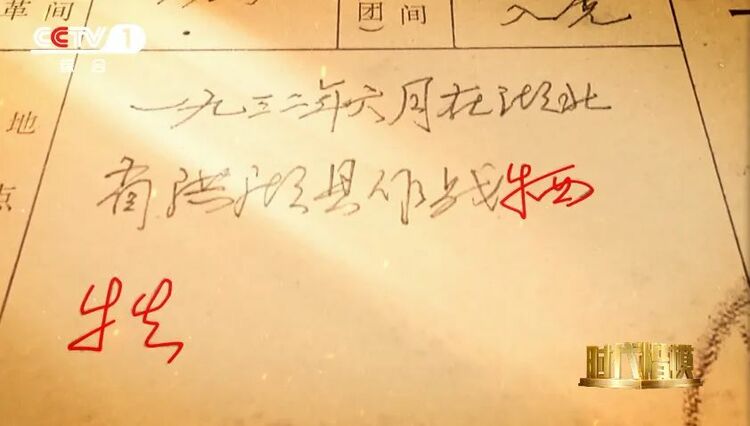 革间
团间
)
入党
CCTV 1
综合
地
点
一九三二年六月在湖北
省洪湖县作战牺
牲
时代楷模